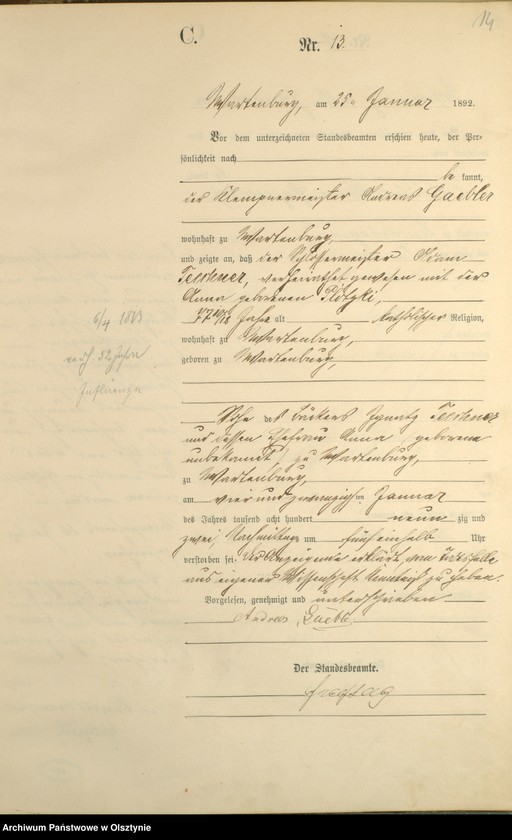 14
C.
Nr. 13.
Wartenburg, am 25ten Januar 1892.
Vor dem unterzeichneten Standesbeamten erschien heute, der Per-
sönlichkeit nach
be kannt,
der Klempnermeister Andreas Gaebler
wohnhaft zu Wartenburg,
und zeigte an, daß der Schlossermeister Adam
Teschner, verheirathet gewesen mit der
Anna geborenen Plotzki,
77 Jahre alt katholischer Religion,
wohnhaft zu Wartenburg,
geboren zu Wartenburg,
6/4 1813
verh. 52 Jahre
Influenza
Sohn des Bäckers Ignatz Teschner
und dessen Ehefrau Anna, geborene
unbekannt, zu Wartenburg,
zu Wartenburg,
am vier und zwanzigsten Januar
des Jahres tausend acht hundert neun zig und
zwei, Nachmittags um fünf einhalb Uhr
verstorben sei. Der Anzeigende erklärt, vom Todesfalle
aus eigener Wissenschaft Kenntniß zu haben.
Vorgelesen, genehmigt und unterschrieben
Andreas Gaebler
Der Standesbeamte.
Freitag
Archiwum Państwowe w Olsztynie